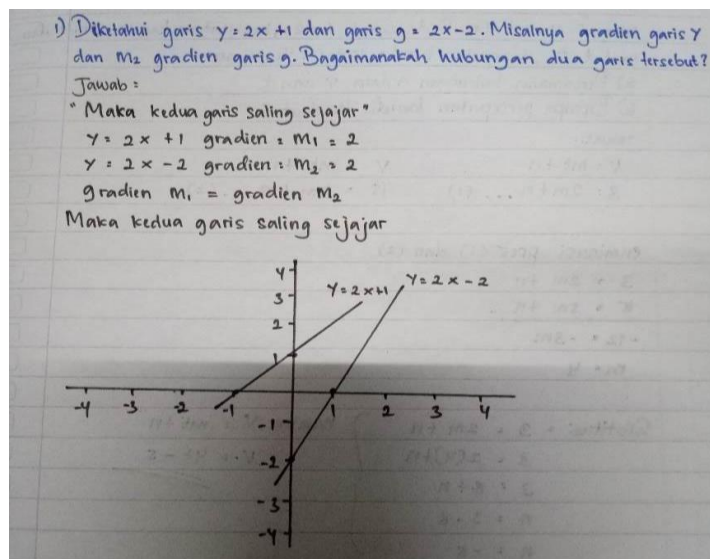 1) Diketahui garis y = 2x +1 dan garis g = 2x-2. Misalnya gradien garis y
dan m2 gradien garis g. Bagaimanakah hubungan dua garis tersebut?
Jawab :
"Maka kedua garis saling sejajar"
y = 2x +1 gradien = m1 = 2
y = 2x - 2 gradien : m2 = 2
gradien m1 = gradien m2
Maka kedua garis saling sejajar
4
3
2
1
y = 2x+1
y = 2x - 2
-4 -3 -2 -1 1 2 3 4
-1
-2
-3
-4